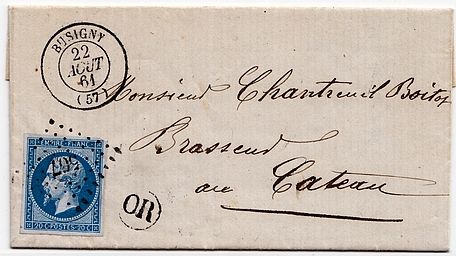 BUSIGNY
22
AOUT
61
(57)
Monsieur Chantreuil Boitof
Brasseur
au Cateau
EMPIRE FRANC
20 C POSTES 20 C
OR